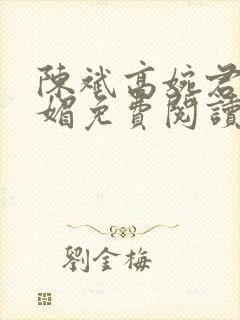 陳斌高婉君
媚免費閱讀
劉金梅